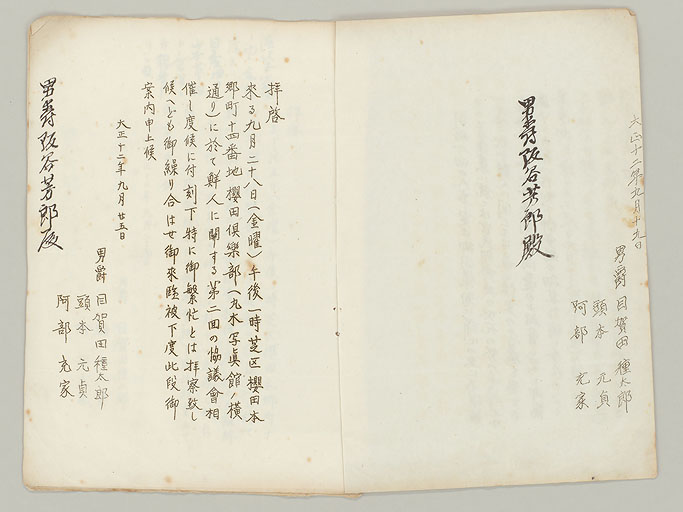 大正十二年九月十九日
男爵 目賀田種太郎
頭本 元貞
阿部 充家
男爵阪谷芳郎殿
拝啓
来る九月二十八日(金曜)午後一時芝区櫻田本
郷町十四番地櫻田倶樂部(丸木写真館ノ横
通り)に於て鮮人に関する第二回の協議會相
催し度候に付刻下特に御繁忙とは拝察致し
候へども御繰り合はせ御来臨被下度此段御
案内申上候
大正十二年九月廿五日
男爵 目賀田種太郎
頭本 元貞
阿部 充家
男爵阪谷芳郎殿